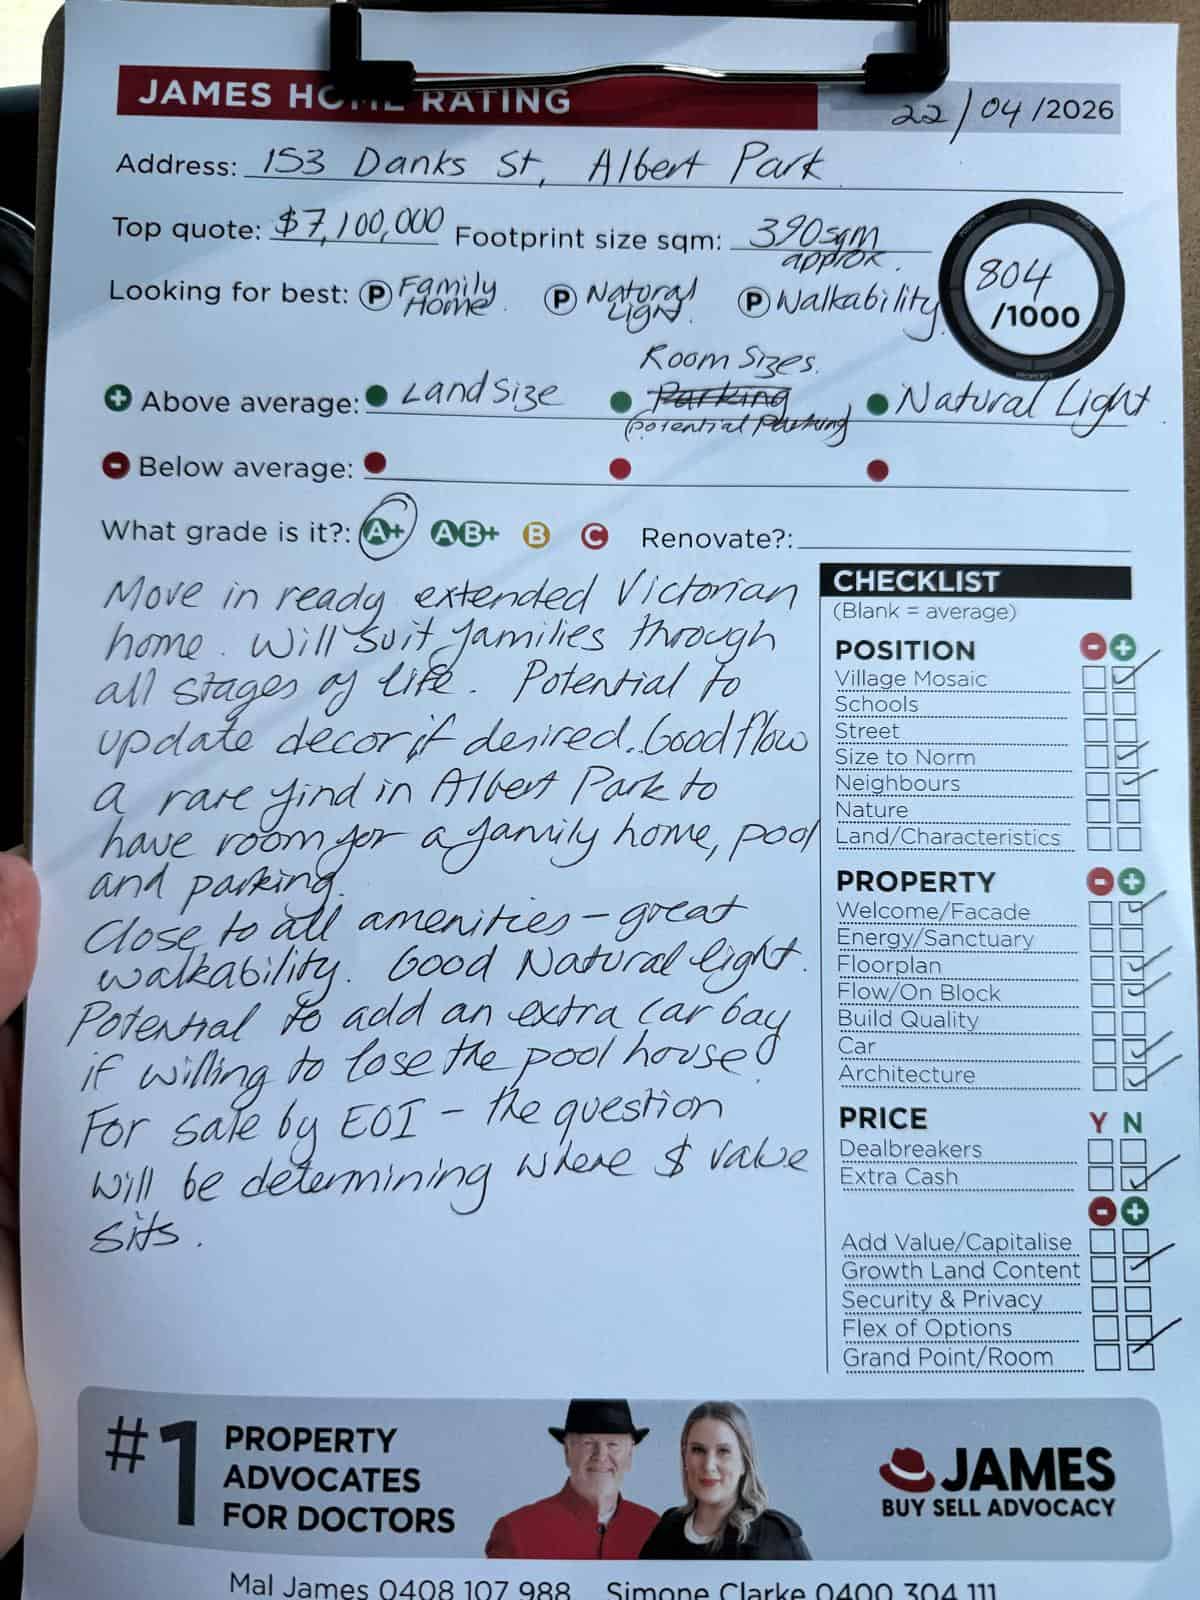 JAMES HOME RATING
22/04/2026
Address: 153 Danks St, Albert Park
Top quote: $7,100,000 Footprint size sqm: 390sqm approx.
Looking for best: P Family Home. P Natural Light. P Walkability.
804 /1000
Room Sizes.
+ Above average: Land Size Parking Natural Light
(potential Parking)
- Below average:
What grade is it?: A+ AB+ B C Renovate?:
Move in ready extended Victorian
home. Will suit families through
all stages of life. Potential to
update decor if desired. Good flow
a rare find in Albert Park to
have room for a family home, pool
and parking.
Close to all amenities - great
walkability. Good Natural light.
Potential to add an extra car bay
if willing to lose the pool house.
For sale by EOI - the question
will be determining where $ value
sits.
CHECKLIST
(Blank = average)
POSITION - +
Village Mosaic
Schools
Street
Size to Norm
Neighbours
Nature
Land/Characteristics
PROPERTY - +
Welcome/Facade
Energy/Sanctuary
Floorplan
Flow/On Block
Build Quality
Car
Architecture
PRICE Y N
Dealbreakers
Extra Cash
- +
Add Value/Capitalise
Growth Land Content
Security & Privacy
Flex of Options
Grand Point/Room
#1 PROPERTY
ADVOCATES
FOR DOCTORS
JAMES
BUY SELL ADVOCACY
Mal James 0408 107 988 Simone Clarke 0400 304 111